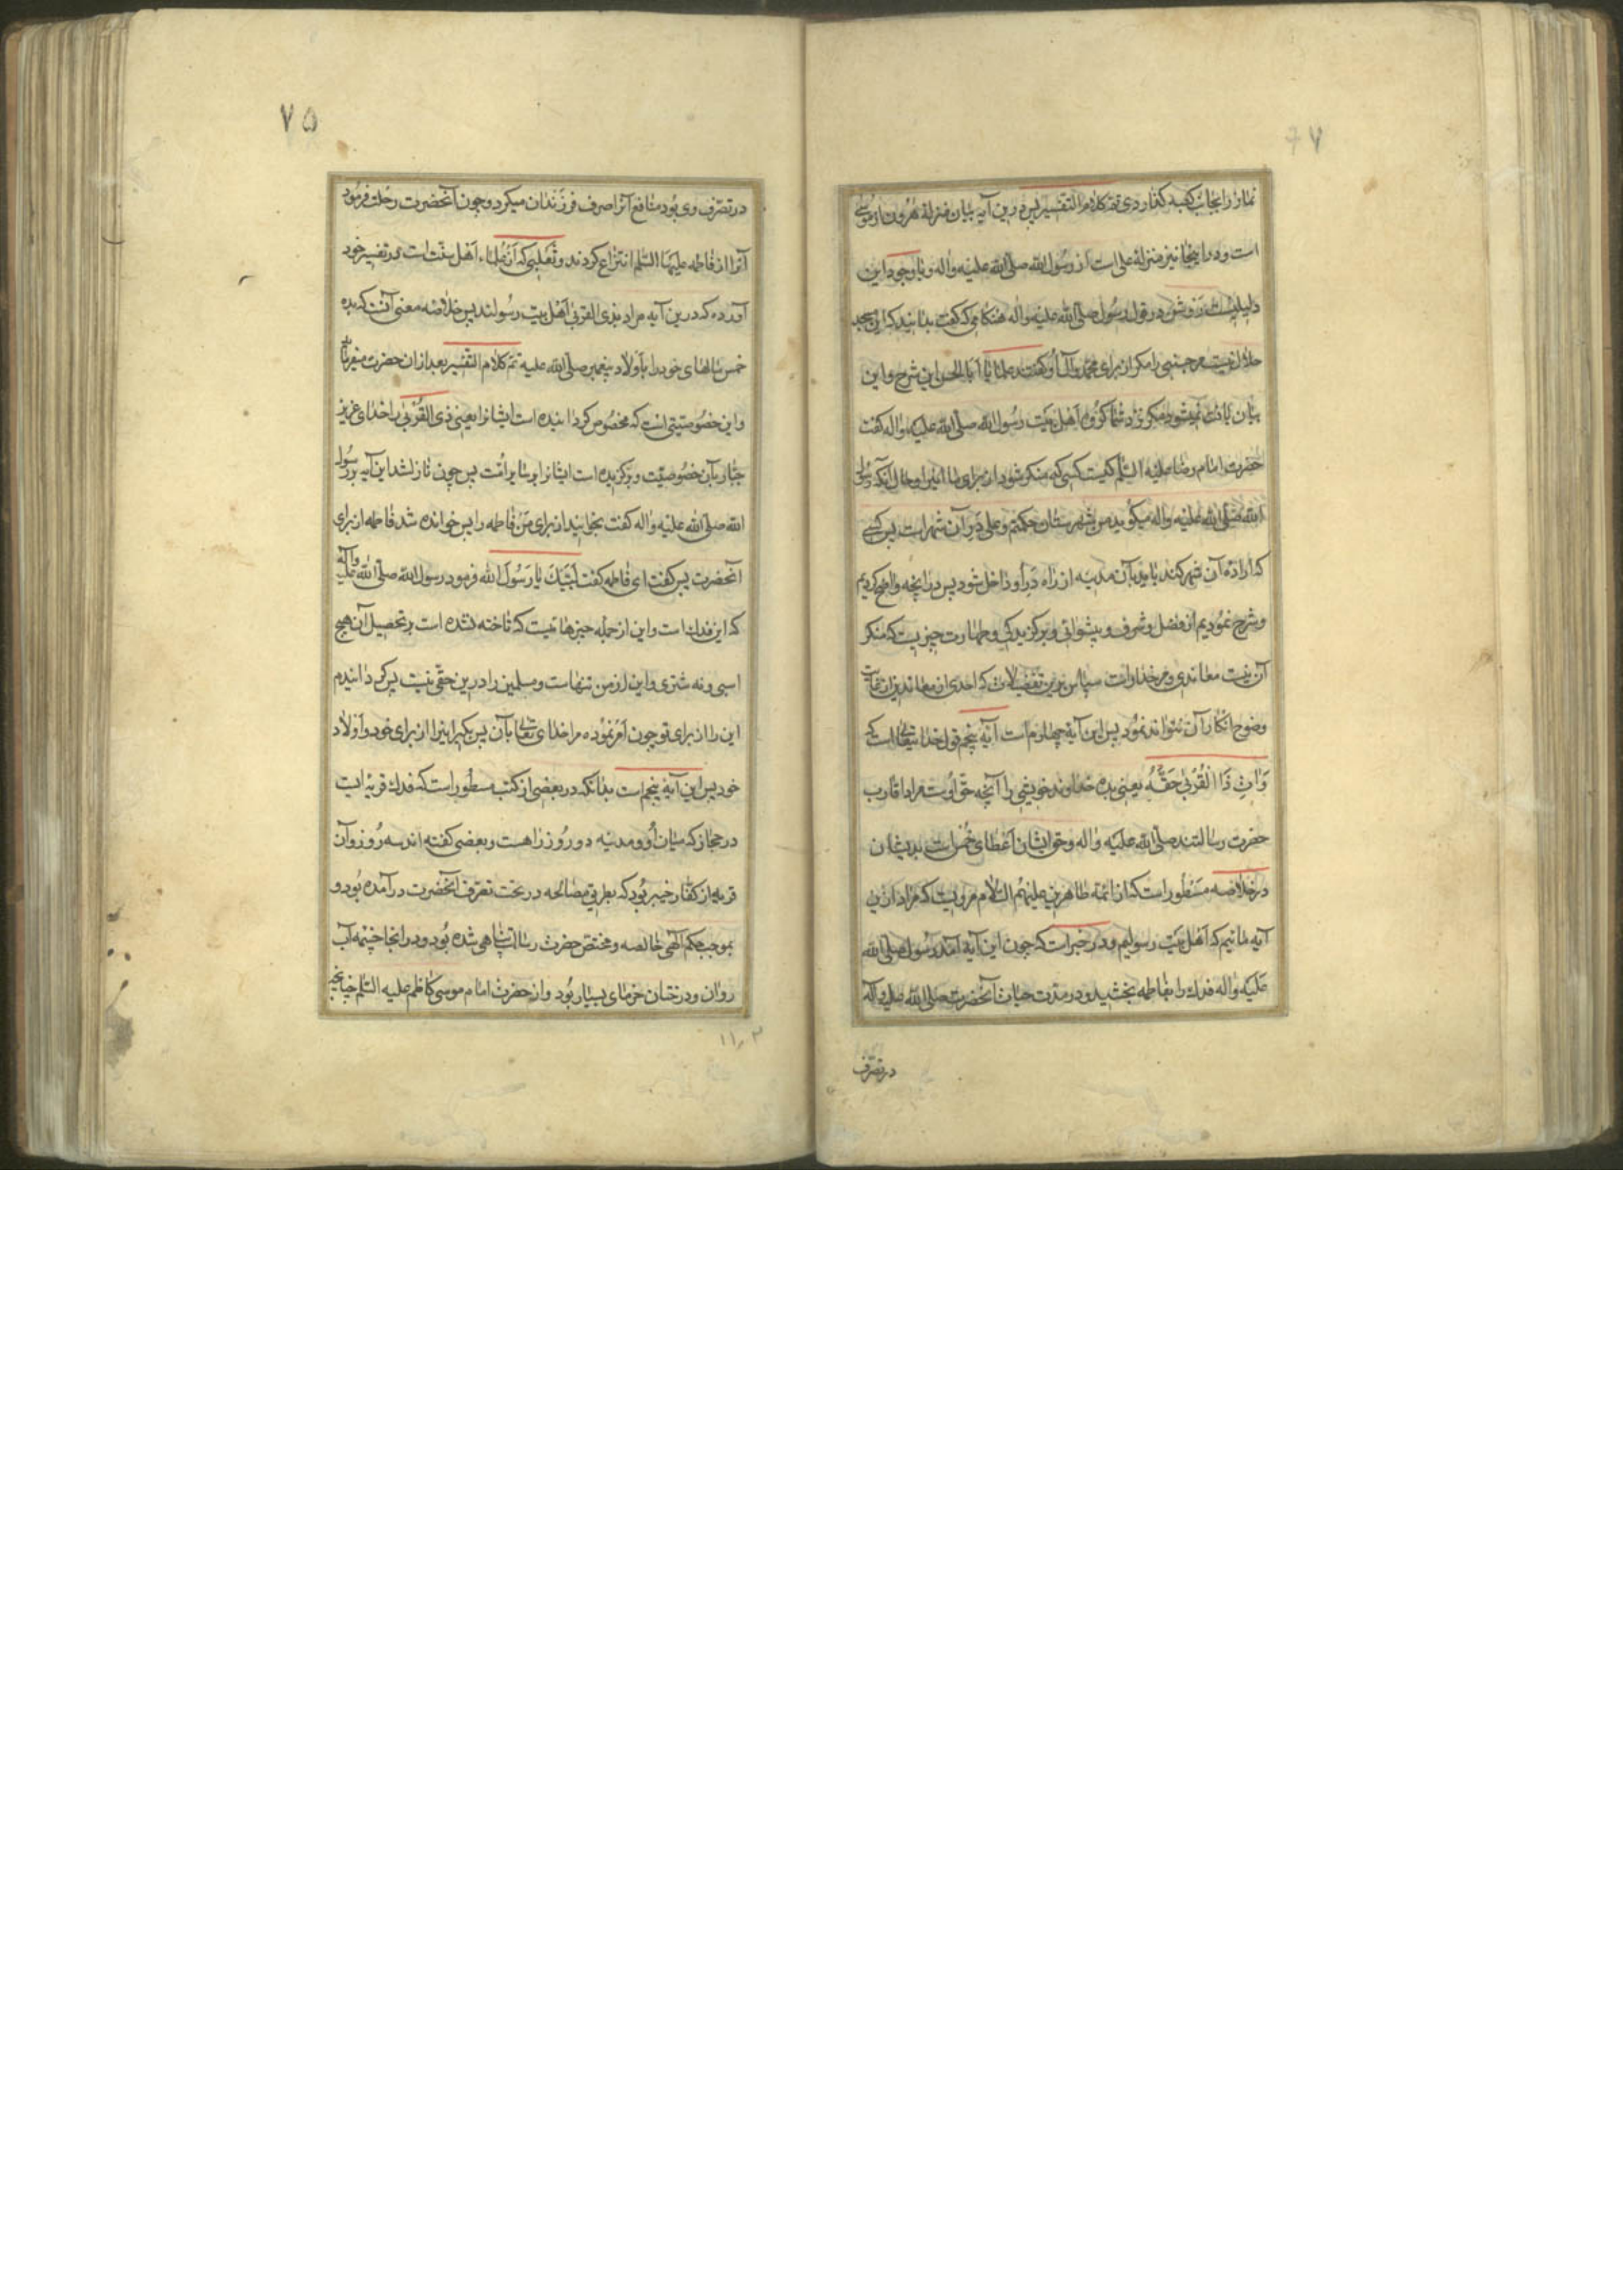 نماز را بجانب کعبه گذاردی تمّ کلام التفسیر پس درین آیه بیان منزلة هرون از موسی
است و در اینجا نیز منزلهٔ علی است از رسول الله صلّی الله علیه واله و با وجود این
دلیلیست روشن در قول رسول صلّی الله علیه واله هنکامی که گفت بدانید که این مسجد
حلال نیست مر جنبی را مکر از برای محمد وآل او گفتند علما یا ابا الحسن این شرح و این
بیان یافت نمیشود مکر نزد شما گروه اهل بیت رسول الله صلّی الله علیه واله گفت
حضرت امام رضا علیه السّلم کیست کسی که منکر شود از برای ما این را و حال آنکه رسول
الله صلّی الله علیه واله میکوید من شهرستان حکمتم و علی در آن شهر است پس کسی
که ارادهٔ آن شهر کند باید بآن مدینه از راه در او داخل شود پس در آنچه واضح کردیم
و شرح نمودیم از فضل و شرف و پیشوائی و برکزیدکی و طهارت چیزیست که منکر
آن نیست معاندی و مر خدا راست سپاس برین تفضیلات که احدی از معاندین
وضوح انکار آن نتواند نمود پس این آیهٔ چهارم است آیهٔ پنجم قول خدا تعالی است که
وَاٰتِ ذَا الْقُرْبیٰ حَقَّهُ یعنی بده خداوند خویشی را آنچه حقّ اوست مراد اقارب
حضرت رسالتند صلّی الله علیه واله و حق ایشان اعطای خمس است بدیشان
در خلاصه مسطور است که از ائمّه طاهرین علیهم السّلام مرویست که مراد ازین
آیه مائیم که اهل بیت رسولیم و در خبر است که چون این آیه آمد رسول صلّی الله
علیه واله فدك را بفاطمه بخشید و در مدّت حیات آنحضرت صلی الله علیه وآله
در تصرّف
۷۵
در تصرّف وی بود منافع آنرا صرف فرزندان میکرد و چون آنحضرت رحلت فرمود
آنرا از فاطمه علیها السّلم انتزاع کردند و ثعلبی که از علماء اهل سنّت است در تفسیر خود
آورده که درین آیه مراد بذی القربی اهل بیت رسولند پس خلاصه معنی آنست که بده
خمس مالهای خود را باولاد پیغمبر صلّی الله علیه تمّ کلام التفسیر بعد از ان حضرت میفرماید
و این خصوصیتی است که مخصوص کردانیده است ایشانرا یعنی ذی القربی را خدای عزیز
جبّار بآن خصوصیّت و برکزیده است ایشانرا بر سایر امّت پس چون نازل شد این آیه بر رسول
الله صلّی الله علیه واله گفت بخوانید از برای من فاطمه را پس خوانده شد فاطمه از برای
انحضرت پس گفت ای فاطمه گفت لبّیك یا رسول الله فرمود رسول الله صلّی الله علیه وآله
که این فدك است و این از جمله چیزهائیست که تاخته نشده است بر تحصیل آن هیچ
اسبی و نه شتری و این از من تنهاست و مسلمین را درین حقّی نیست پس کردانیدم
این را از برای تو چون امر نموده مرا خدای تعالی بآن پس بکیر اینرا از برای خود و اولاد
خود پس این آیهٔ پنجم است بدانکه در بعضی از کتب مسطور است که فدك قریه‌ایست
در حجاز که میان او و مدینه دو روز راهست و بعضی گفته‌اند سه روز و آن
قریه از کفّار خیبر بود که بطریق مصالحه در تحت تصرّف آنحضرت در آمده بود و
بموجب حکم الهی خالصه و مختصّ حضرت رسالت پناهی شده بود و در انجا چشمه آب
روان و درختان خرمای بسیار بود و از حضرت امام موسی کاظم علیه السّلم چنانچه